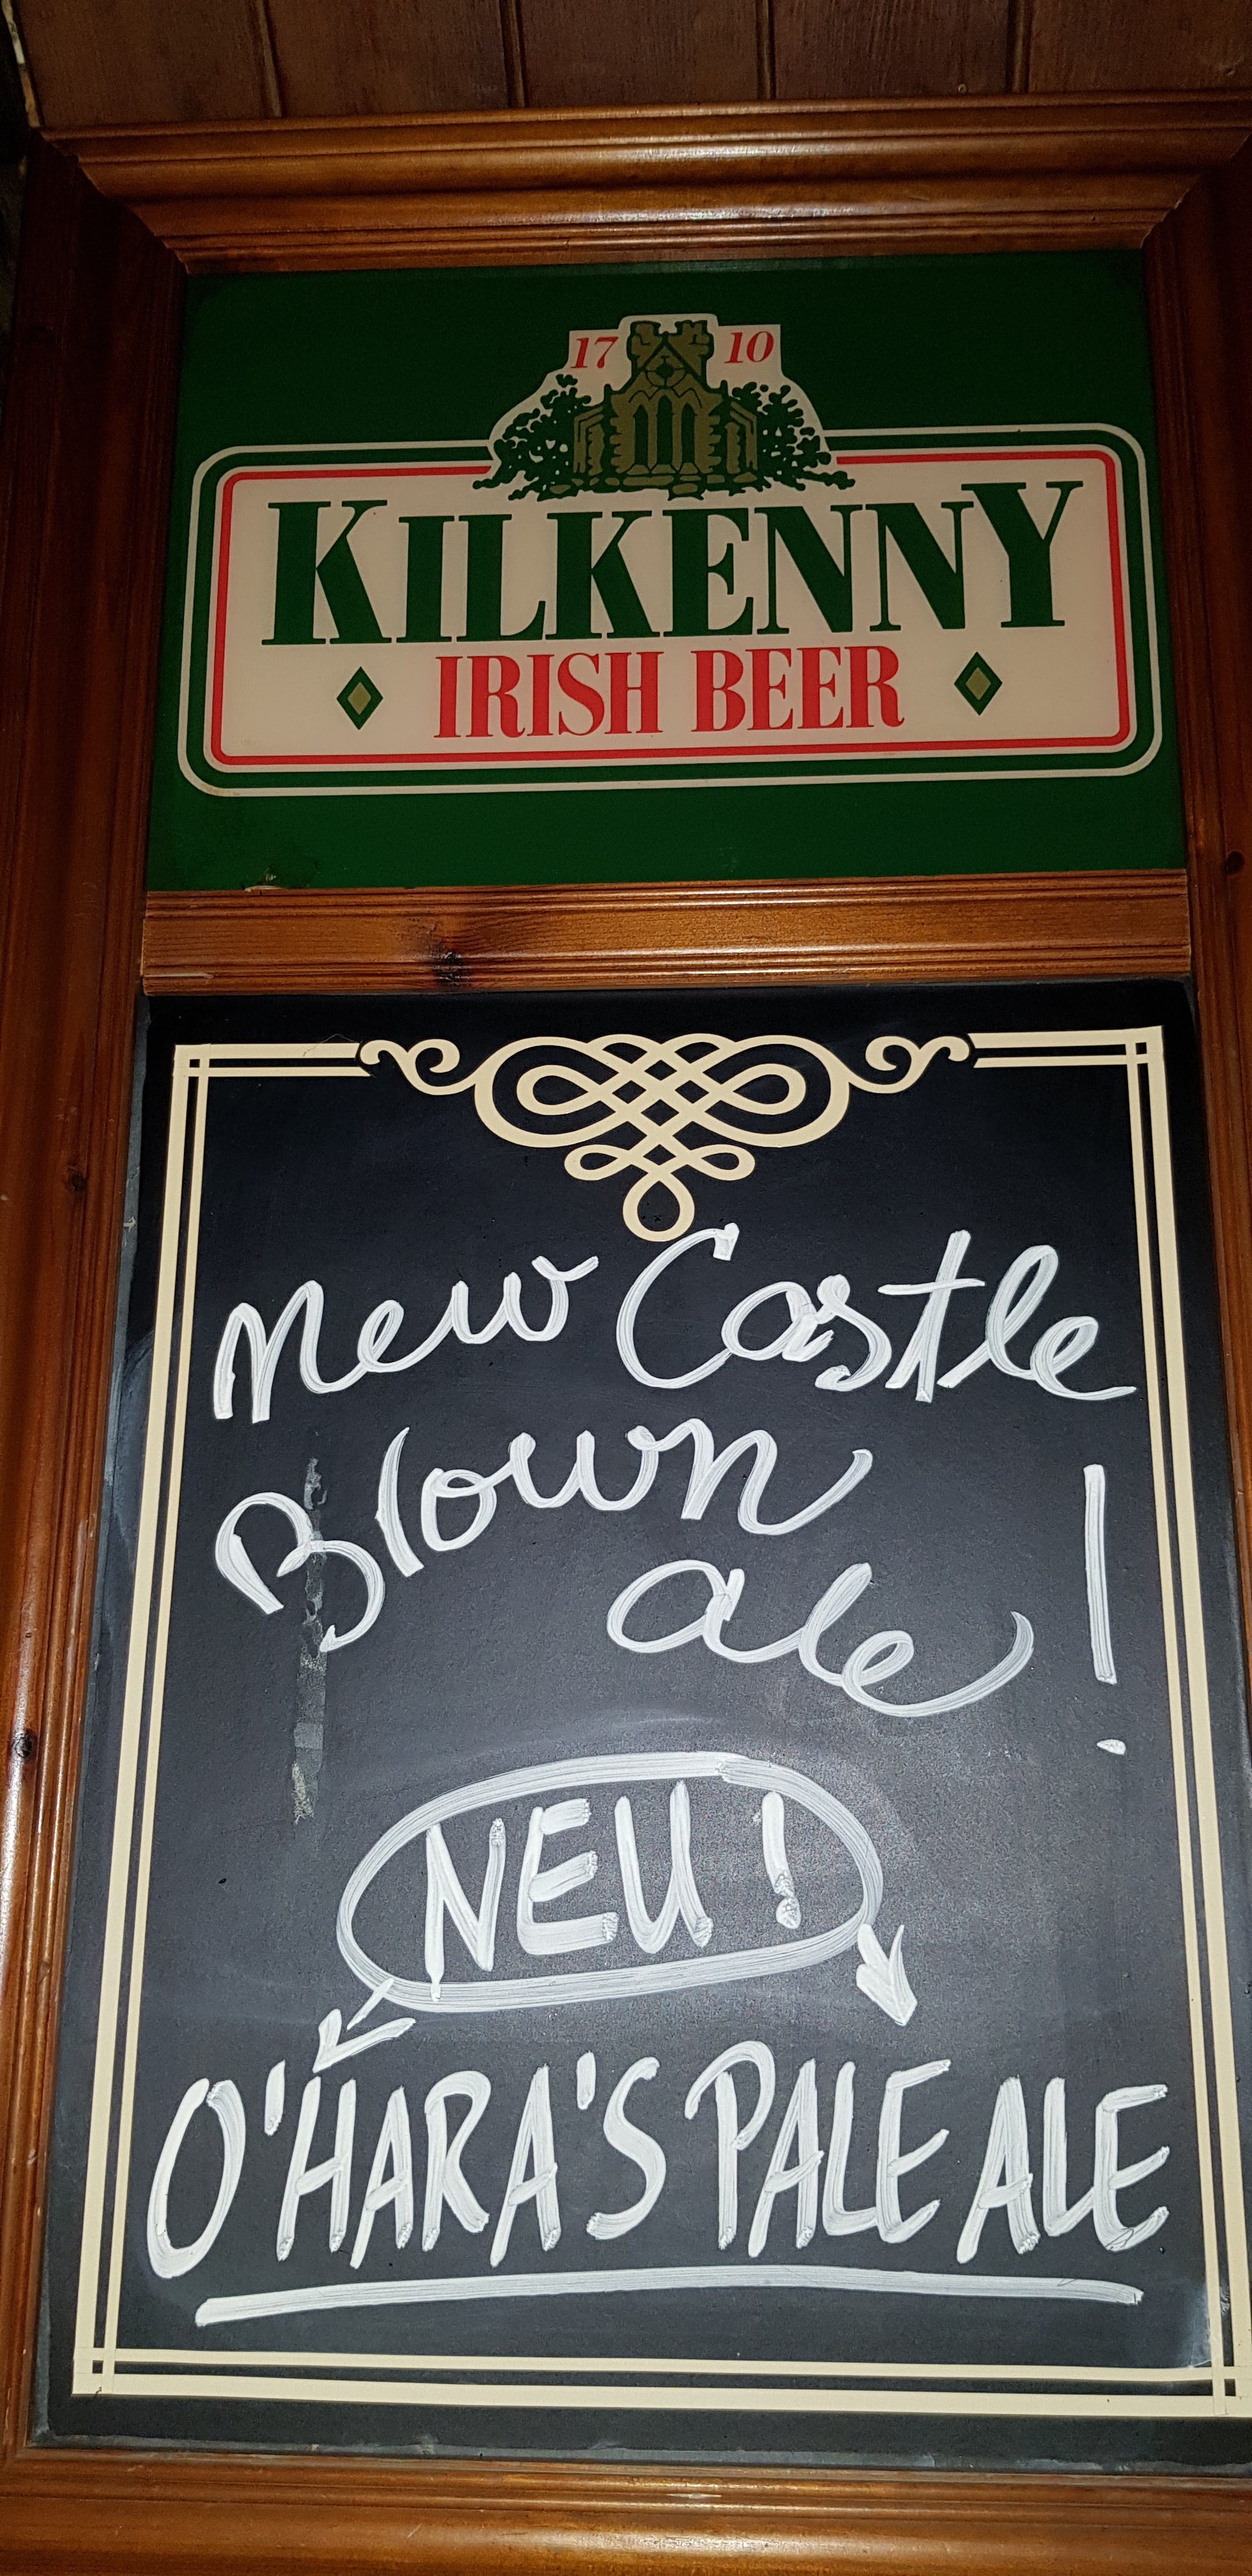 17 10
KILKENNY
IRISH BEER
New Castle
Brown
ale!
NEU!
O'HARA'S PALE ALE